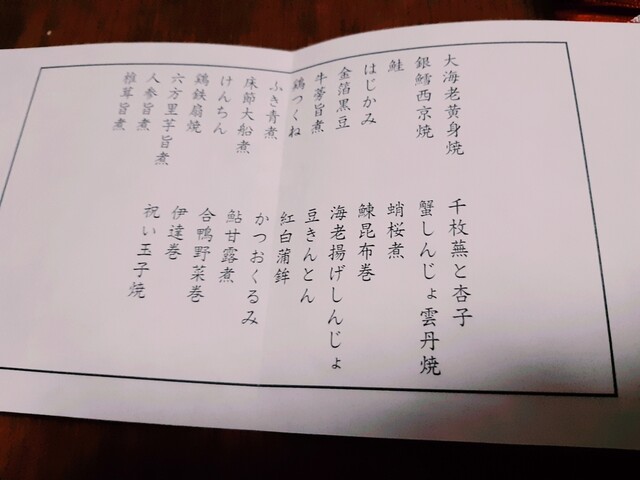 大海老黄身焼
銀鱈西京焼
鮭
はじかみ
金箔黒豆
牛蒡旨煮
鶏つくね
ふき青煮
床節大船煮
けんちん
鶏鉄扇焼
六方里芋旨煮
人参旨煮
椎茸旨煮
千枚蕪と杏子
蟹しんじょ雲丹焼
蛸桜煮
鰊昆布巻
海老揚げしんじょ
豆きんとん
紅白蒲鉾
かつおくるみ
鮎甘露煮
合鴨野菜巻
伊達巻
祝い玉子焼